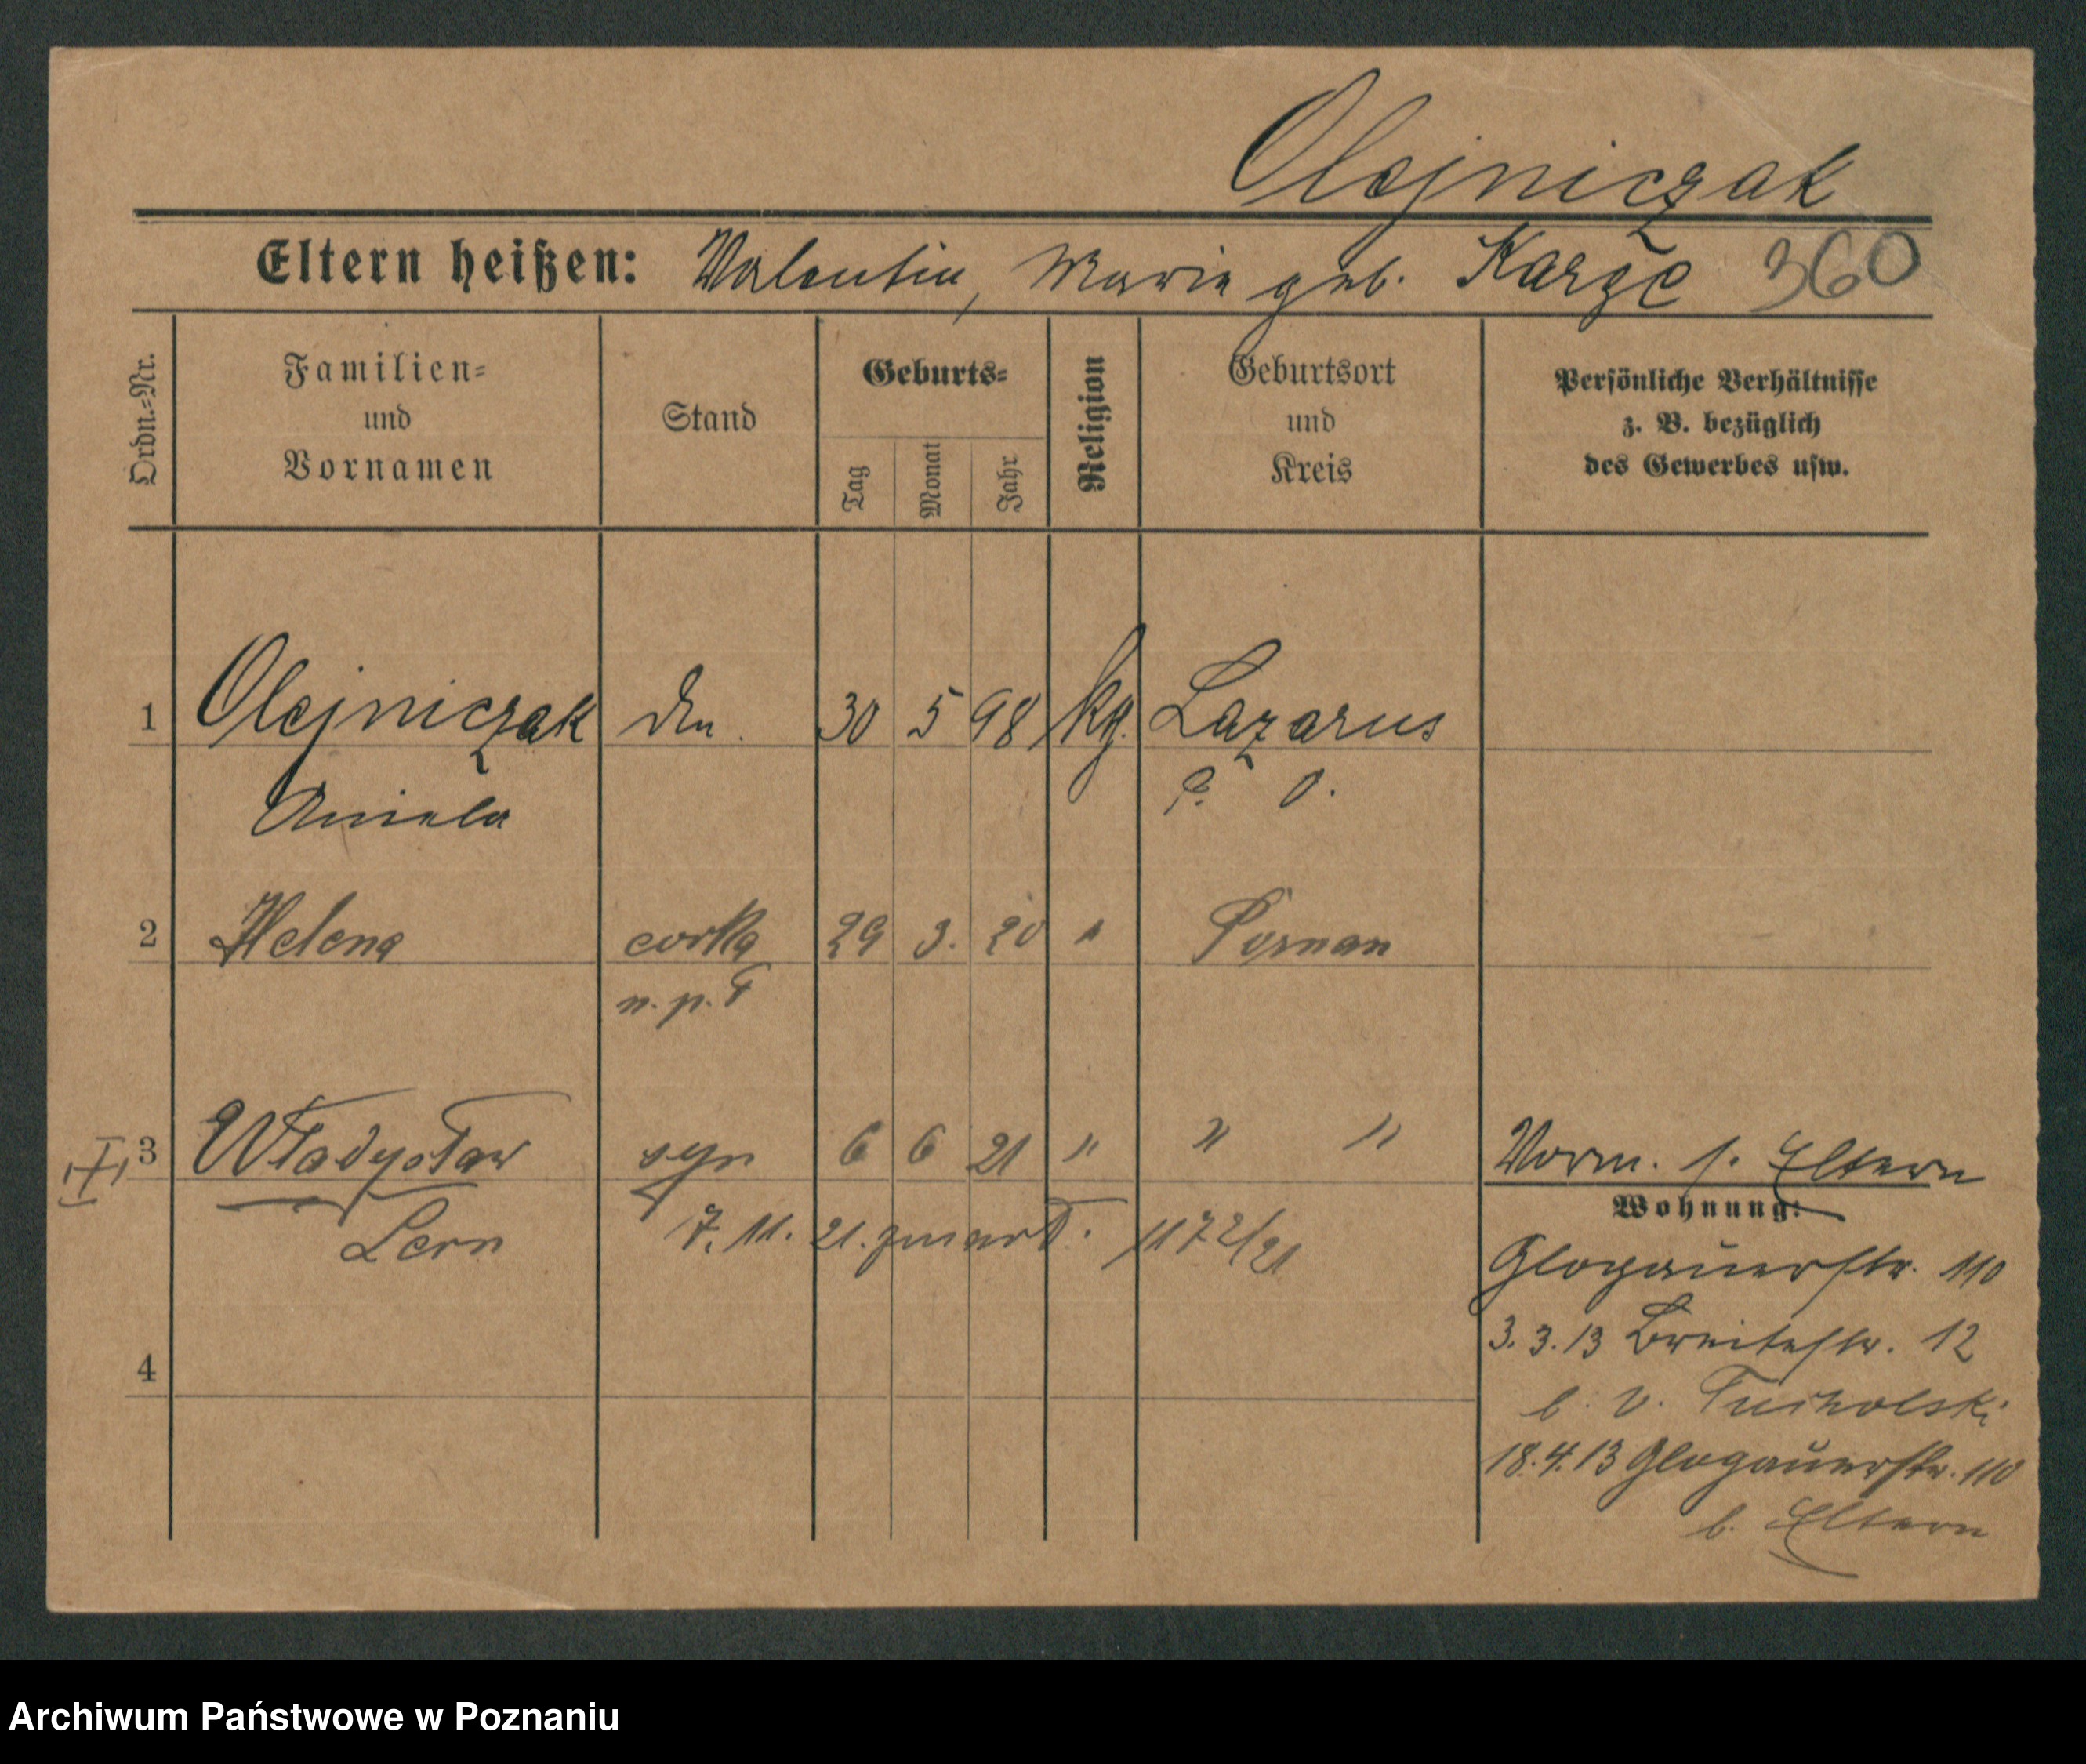 Olejniczak
Eltern heißen: Valentin, Marie geb. Karge 360
Ordn.-Nr.
Familien-
und
Vornamen
Stand
Geburts-
Tag
Monat
Jahr
Religion
Geburtsort
und
Kreis
Persönliche Verhältnisse
z. B. bezüglich
des Gewerbes usw.
1 Olejniczak 30 5 98 kg. Lazarus
Aniela P. O.
2 Helena corka 29 3. 20 " Poznan
n. p. F
3 Władysław syn 6 6 21 " " "
Leon 7. 11. 21. zmarł. 1172/21
Vorm. s. Eltern
Wohnung:
Glogauerstr. 110
3. 3. 13 Breitestr. 12
b. v. Tucholski
18. 4. 13 Glogauerstr. 110
b. Eltern
4
Archiwum Państwowe w Poznaniu